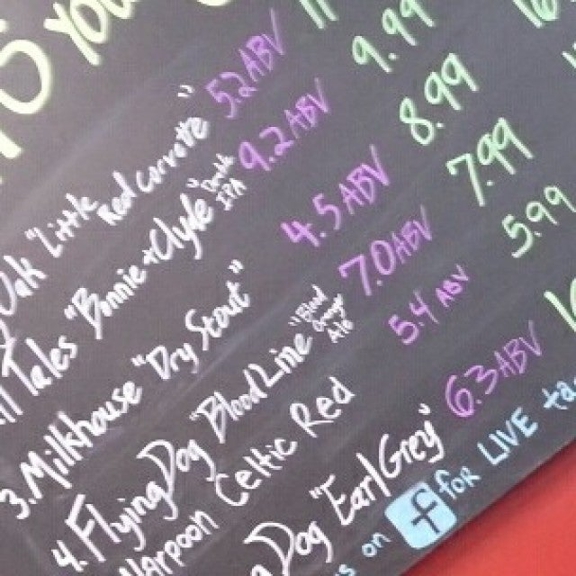 S YOU
Oak "Little Red Corvette" 5.2 ABV 11
ll Tales "Bonnie + Clyde" Double IPA 9.2 ABV 9.99
3. Milkhouse "Dry Stout" 4.5 ABV 8.99
4. Flying Dog "BloodLine" "Blood Orange Ale 7.0 ABV 7.99
Harpoon Celtic Red 5.4 ABV 5.99
g Dog "Earl Grey" 6.3 ABV
s on f for LIVE ta